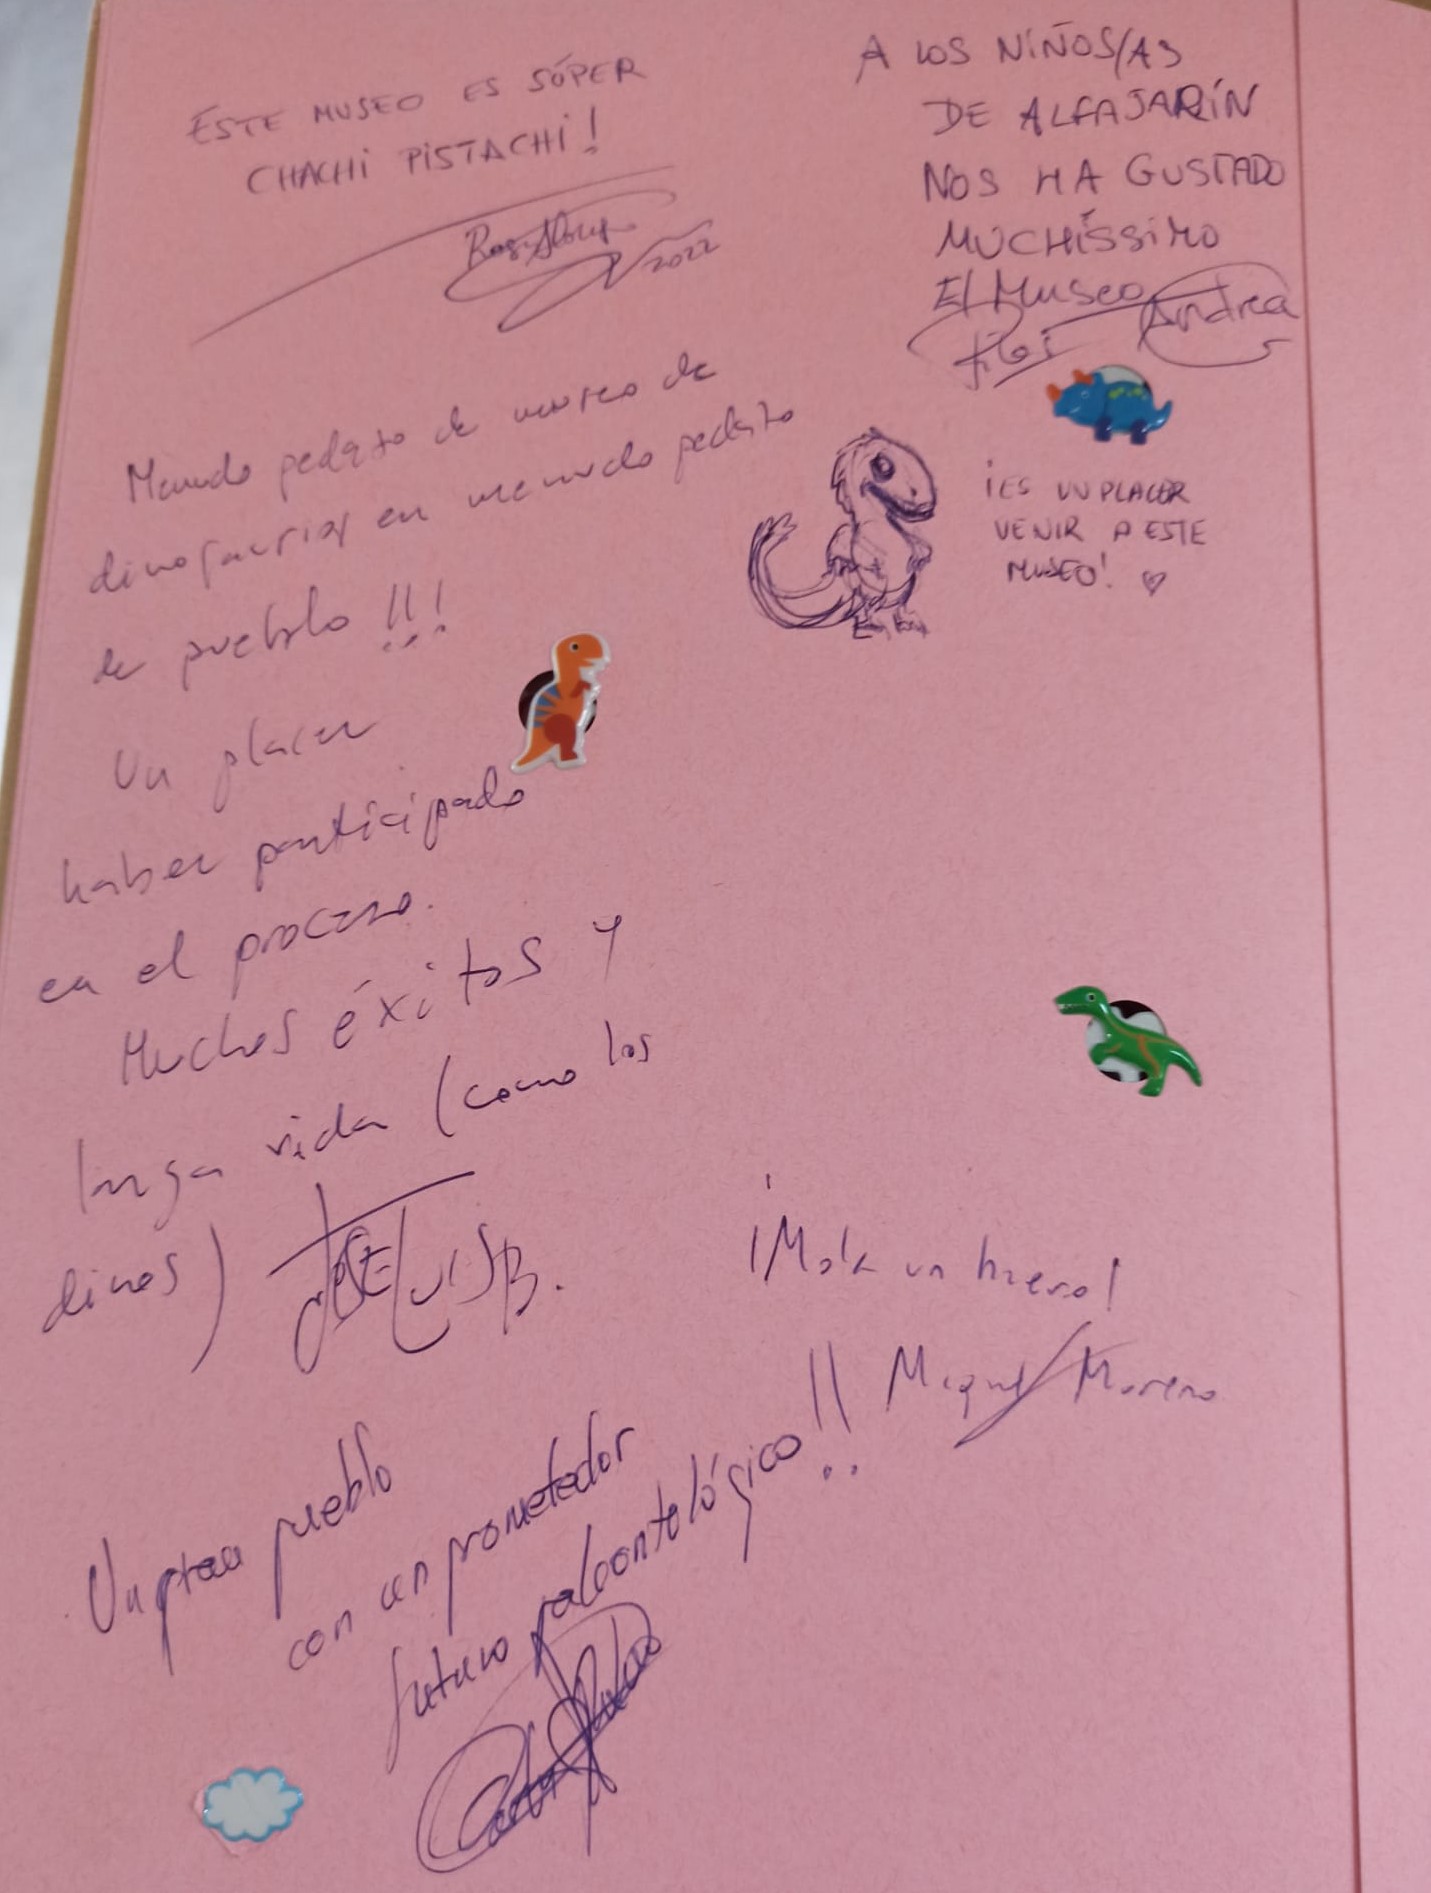 ESTE MUSEO ES SÓPER
CHACHI PISTACHI!
2022
A LOS NIÑOS/AS
DE ALFAJARÍN
NOS HA GUSTADO
MUCHÍSSIMO
El MUSEO
Andrea
Menudo pedazo de museo de
dinosaurios en menudo pedazo
de pueblo !!!
¡ES UN PLACER
VENIR A ESTE
MUSEO! ♡
Un placer
haber participado
en el proceso.
Muchos éxitos y
larga vida (como los
dinos)
JOSE LUIS B.
¡Mola un hueso!
Miguel Moreno
Un gran pueblo
con un prometedor
futuro paleontológico!!